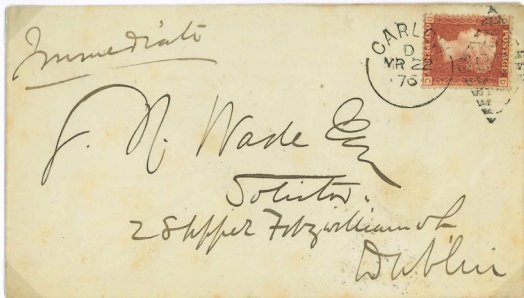 Immediate
CARLO
D
MR 22
76
POSTAGE
J. N. Wade Esq
Solicitor.
2 Upper Fitzwilliam St
Dublin